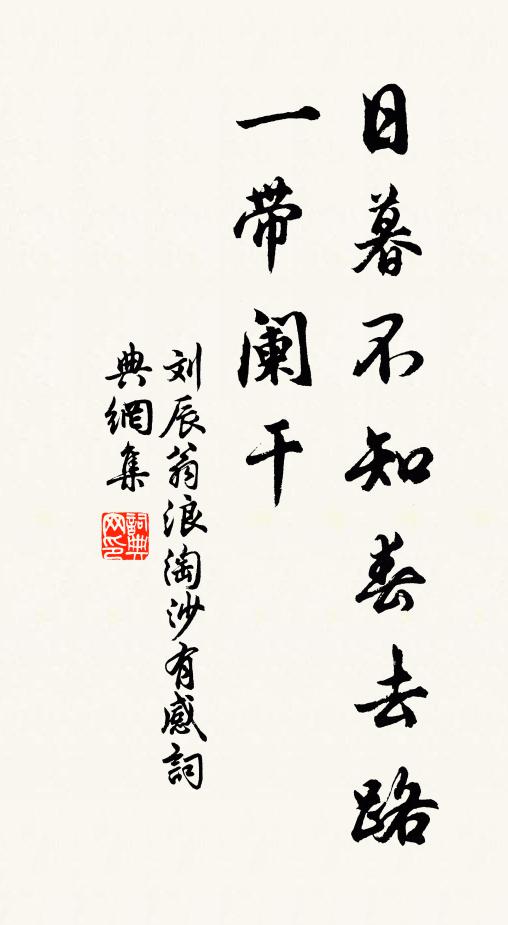 日暮不知春去路
一带阑干
刘辰翁浪淘沙有感詞
典網集
詞典
网印